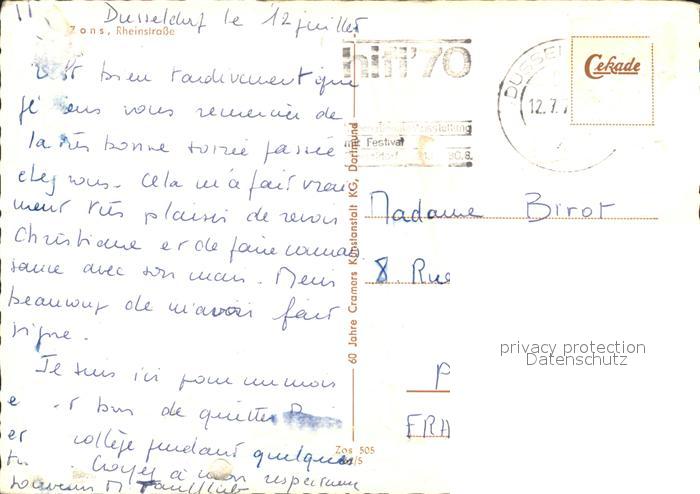 Dusseldorf le 12 juillet
Zons, Rheinstraße
C'est bien tardivement que
je viens vous remercier de
la très bonne soirée passée
chez vous. Cela m'a fait vrai
ment très plaisir de revoir
Christiane et de faire connais
sance avec son mari. Merci
beaucoup de m'avoir fait
signe.
Je suis ici pour un mois
bon de quitter
et collège pendant quelques
Croyez à mon respectueux
souvenir M
hifi '70
Festival
12.7.7
Cekade
60 Jahre Cramers Kunstanstalt KG, Dortmund
Madame Birot
8 Rue
P
FRA
privacy protection
Datenschutz
Zos 505